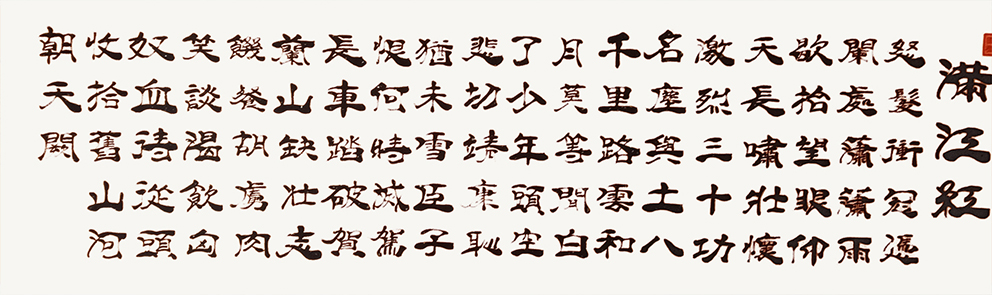 滿江紅
怒髮衝冠憑
闌處瀟瀟雨
歇抬望眼仰
天長嘯壯懷
激烈三十功
名塵與土八
千里路雲和
月莫等閒白
了少年頭空
悲切靖康恥
猶未雪臣子
恨何時滅駕
長車踏破賀
蘭山缺壯志
饑餐胡虜肉
笑談渴飲匈
奴血待從頭
收拾舊山河
朝天闕